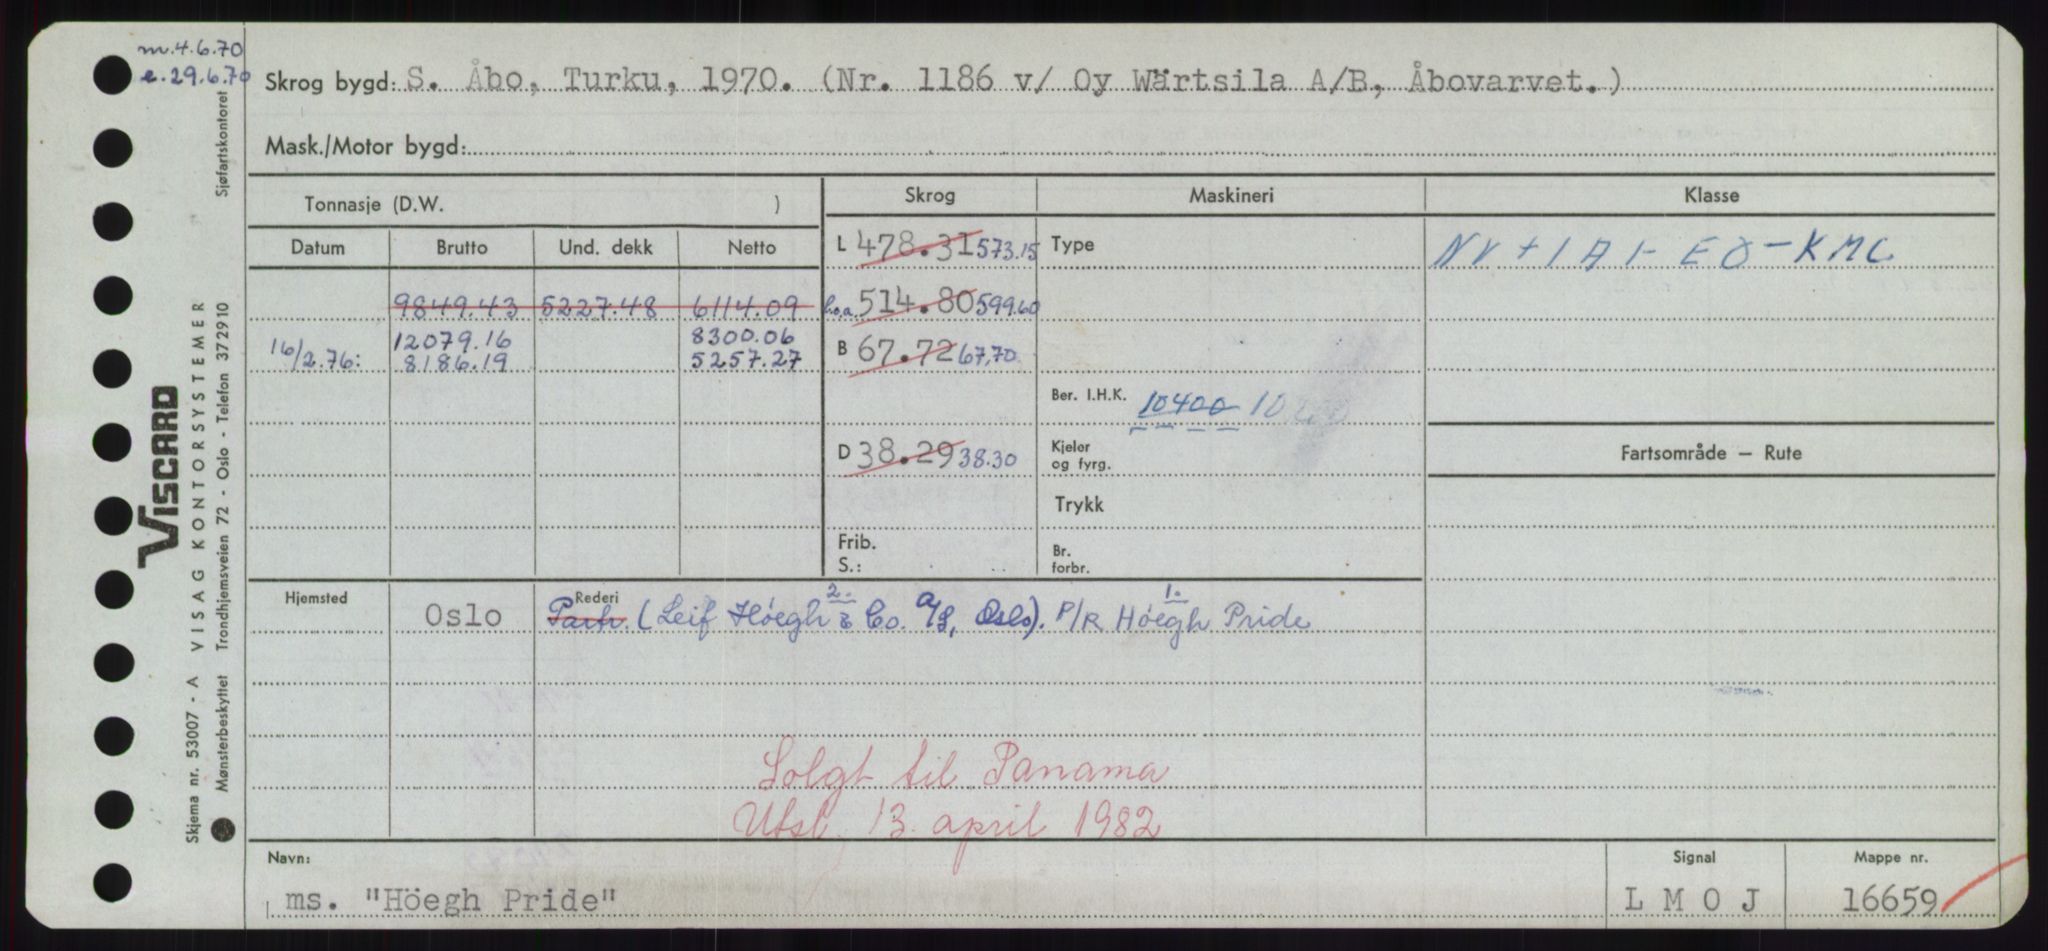 m.4.6.70
e.29.6.70
Skrog bygd: S. Åbo, Turku, 1970. (Nr. 1186 v/ Oy Wärtsila A/B, Åbovarvet.)
Mask./Motor bygd:
Tonnasje (D.W. )
Skrog
Maskineri
Klasse
Datum Brutto Und. dekk Netto
L 478.31 573.15
Type
NV + 1A1- EO - KMC
9849.43 5227.48 6114.09
l.o.a. 514.80 599.60
16/2.76: 12079.16 8300.06
8186.19 5257.27
B 67.72 67,70
Ber. I.H.K. 10400
D 38.29 38.30
Kjeler
og fyrg.
Fartsområde — Rute
Trykk
Frib.
S.:
Br.
forbr.
Hjemsted
Rederi
2. 1.
Oslo Partr. (Leif Höegh & Co. A/S, Oslo). P/R Höegh Pride
Solgt til Panama
Utsl. 13. april 1982
Navn:
Signal
Mappe nr.
ms. "Höegh Pride"
L M O J
16659
VISCARD
Skjema nr. 53007 - A VISAG KONTORSYSTEMER
Mønsterbeskyttet Trondhjemsveien 72 - Oslo - Telefon 372910 Sjøfartskontoret